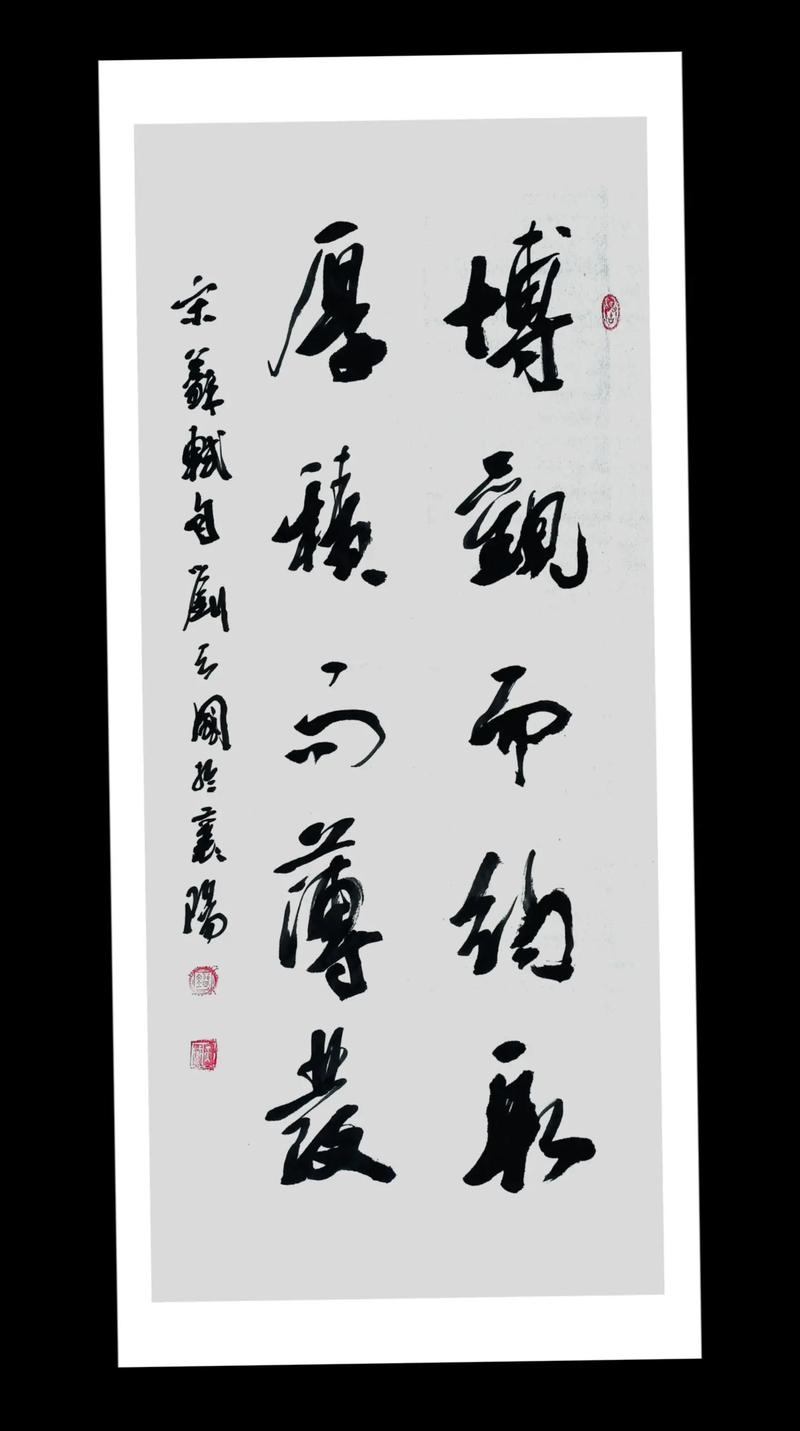 博觀而約取
厚積而薄發
宋蘇軾句劉云國於襄陽